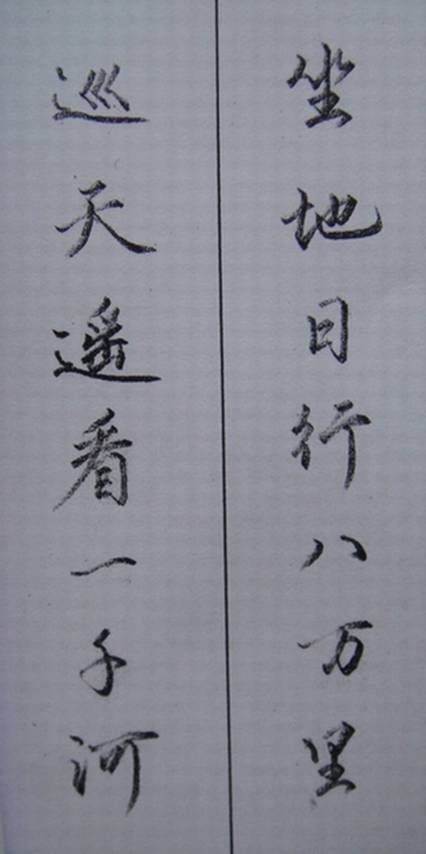 坐地日行八万里
巡天遥看一千河